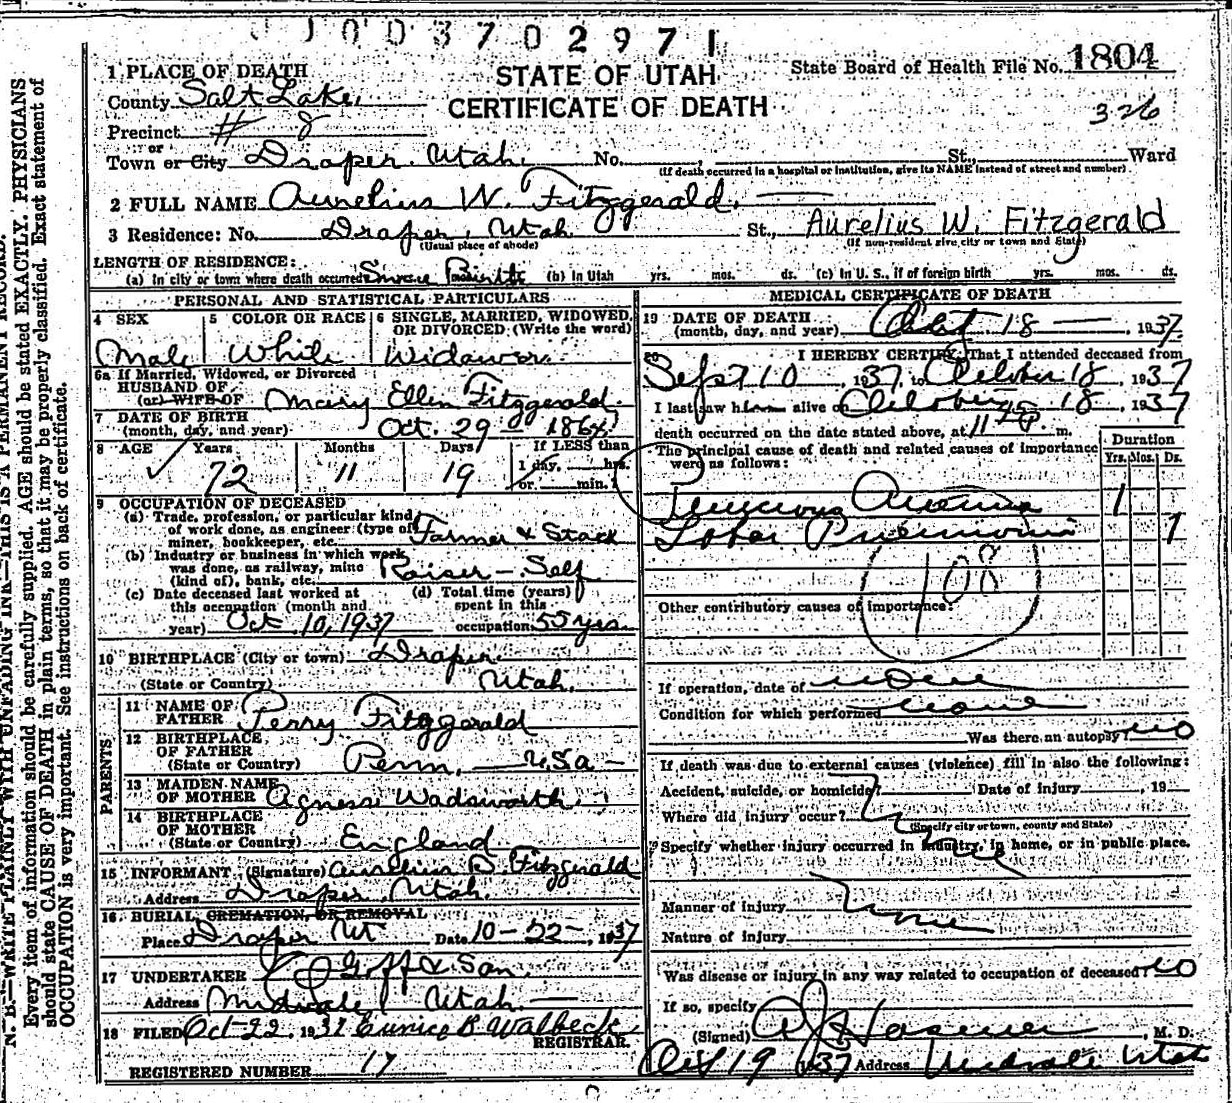 1003702971
STATE OF UTAH
CERTIFICATE OF DEATH
State Board of Health File No. 1804
326
1 PLACE OF DEATH
County Salt Lake,
Precinct # 8
or
Town or City Draper. Utah. No. , St., Ward
(If death occurred in a hospital or institution, give its NAME instead of street and number).
2 FULL NAME Aurelius W. Fitzgerald.
3 Residence: No. Draper, Utah St., Aurelius W. Fitzgerald
(Usual place of abode) (If non-resident give city or town and State)
LENGTH OF RESIDENCE:
(a) In city or town where death occurred Since Birth (b) In Utah yrs. mos. ds. (c) In U. S., if of foreign birth yrs. mos. ds.
PERSONAL AND STATISTICAL PARTICULARS
4 SEX 5 COLOR OR RACE 6 SINGLE, MARRIED, WIDOWED, OR DIVORCED (Write the word)
Male White Widower
6a If Married, Widowed, or Divorced
HUSBAND OF
(or) WIFE OF Mary Ellen Fitzgerald.
7 DATE OF BIRTH
(month, day, and year) Oct. 29 1864
8 AGE Years Months Days If LESS than
72 11 19 1 day, hrs.
or min.
9 OCCUPATION OF DECEASED
(a) Trade, profession, or particular kind
of work done, as engineer (type of
miner, bookkeeper, etc. Farmer & Stock
(b) Industry or business in which work
was done, as railway, mine
(kind of), bank, etc. Raiser - Self
(c) Date deceased last worked at
this occupation (month and
year) Oct. 10, 1937
(d) Total time (years)
spent in this
occupation 55 yrs.
10 BIRTHPLACE (City or town) Draper
(State or Country) Utah.
PARENTS
11 NAME OF
FATHER Perry Fitzgerald
12 BIRTHPLACE
OF FATHER
(State or Country) Penn. U.S.a -
13 MAIDEN NAME
OF MOTHER Agness Wadsworth
14 BIRTHPLACE
OF MOTHER
(State or Country) England
15 INFORMANT (Signature) Aurelius B. Fitzgerald
Address Draper, Utah.
16 BURIAL, CREMATION, OR REMOVAL
Place Draper Ut Date 10-22-, 1937
17 UNDERTAKER Goff & Son.
Address Midvale Utah
18 FILED Oct 22, 1937 Eunice B Walbeck
REGISTRAR.
REGISTERED NUMBER 17
MEDICAL CERTIFICATE OF DEATH
19 DATE OF DEATH
(month, day, and year) Oct 18 , 1937
20 I HEREBY CERTIFY, That I attended deceased from
Sept 10 1937, to October 18, 1937
I last saw him alive on October 18, 1937
death occurred on the date stated above, at 11 P. m.
The principal cause of death and related causes of importance
were as follows:
Duration
Yrs. Mos. Ds.
Pernicious Anemia 1
Lobar Pneumonia 7
108
Other contributory causes of importance:
If operation, date of none
Condition for which performed none
Was there an autopsy? no
If death was due to external causes (violence) fill in also the following:
Accident, suicide, or homicide? Date of injury , 19
Where did injury occur?
(Specify city or town, county and State)
Specify whether injury occurred in industry, in home, or in public place.
Manner of injury none
Nature of injury
Was disease or injury in any way related to occupation of deceased? no
If so, specify
(Signed) , M. D.
Oct 19 1937 Address Midvale Utah
N. B.—WRITE PLAINLY WITH UNFADING INK—THIS IS A PERMANENT RECORD.
Every item of information should be carefully supplied. AGE should be stated EXACTLY. PHYSICIANS
should state CAUSE OF DEATH in plain terms, so that it may be properly classified. Exact statement of
OCCUPATION is very important. See instructions on back of certificate.